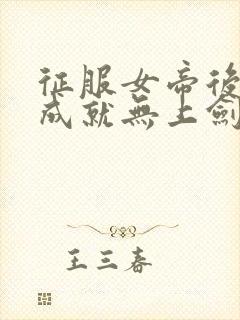 征服女帝後
成就無上劍
王三春